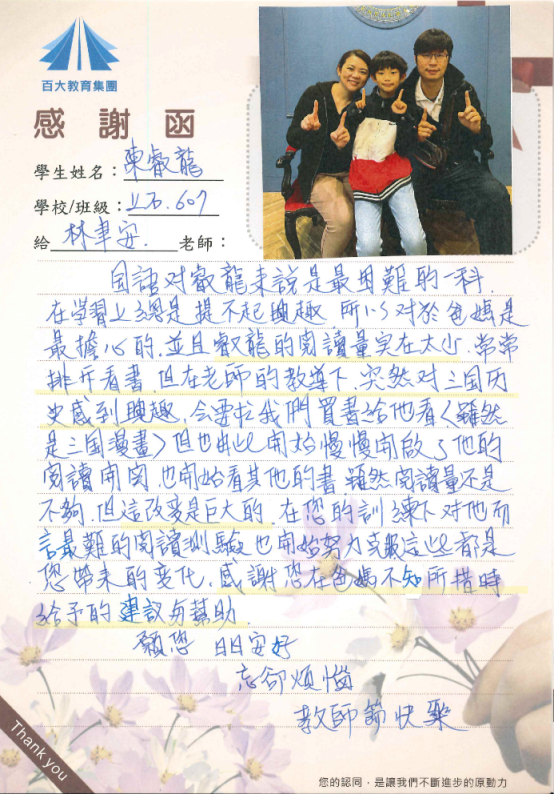 百大教育集團
感謝函
學生姓名：陳叡龍
學校/班級：上石.607
給林聿安.老師：
国語对叡龍来說是最困難的一科.
在學習上總是提不起興趣 所以对於爸媽是
最擔心的.並且叡龍的閱讀量实在太少.常常
排斥看書.但在老師的教導下.突然对三国历
史感到興趣,会要拉我們買書給他看<雖然
是三国漫畫>但也由此開始慢慢開啟了他的
閱讀開関.也開始看其他的書.雖然閱讀量还是
不夠.但這改变是巨大的.在您的訓練下对他而
言最難的閱讀測驗也開始努力克服這些都是
您带来的变化.感謝您在爸媽不知所措時
給予的建议与幫助.
願您 日日安好
忘卻煩惱
教師節快樂
Thank you
您的認同，是讓我們不斷進步的原動力